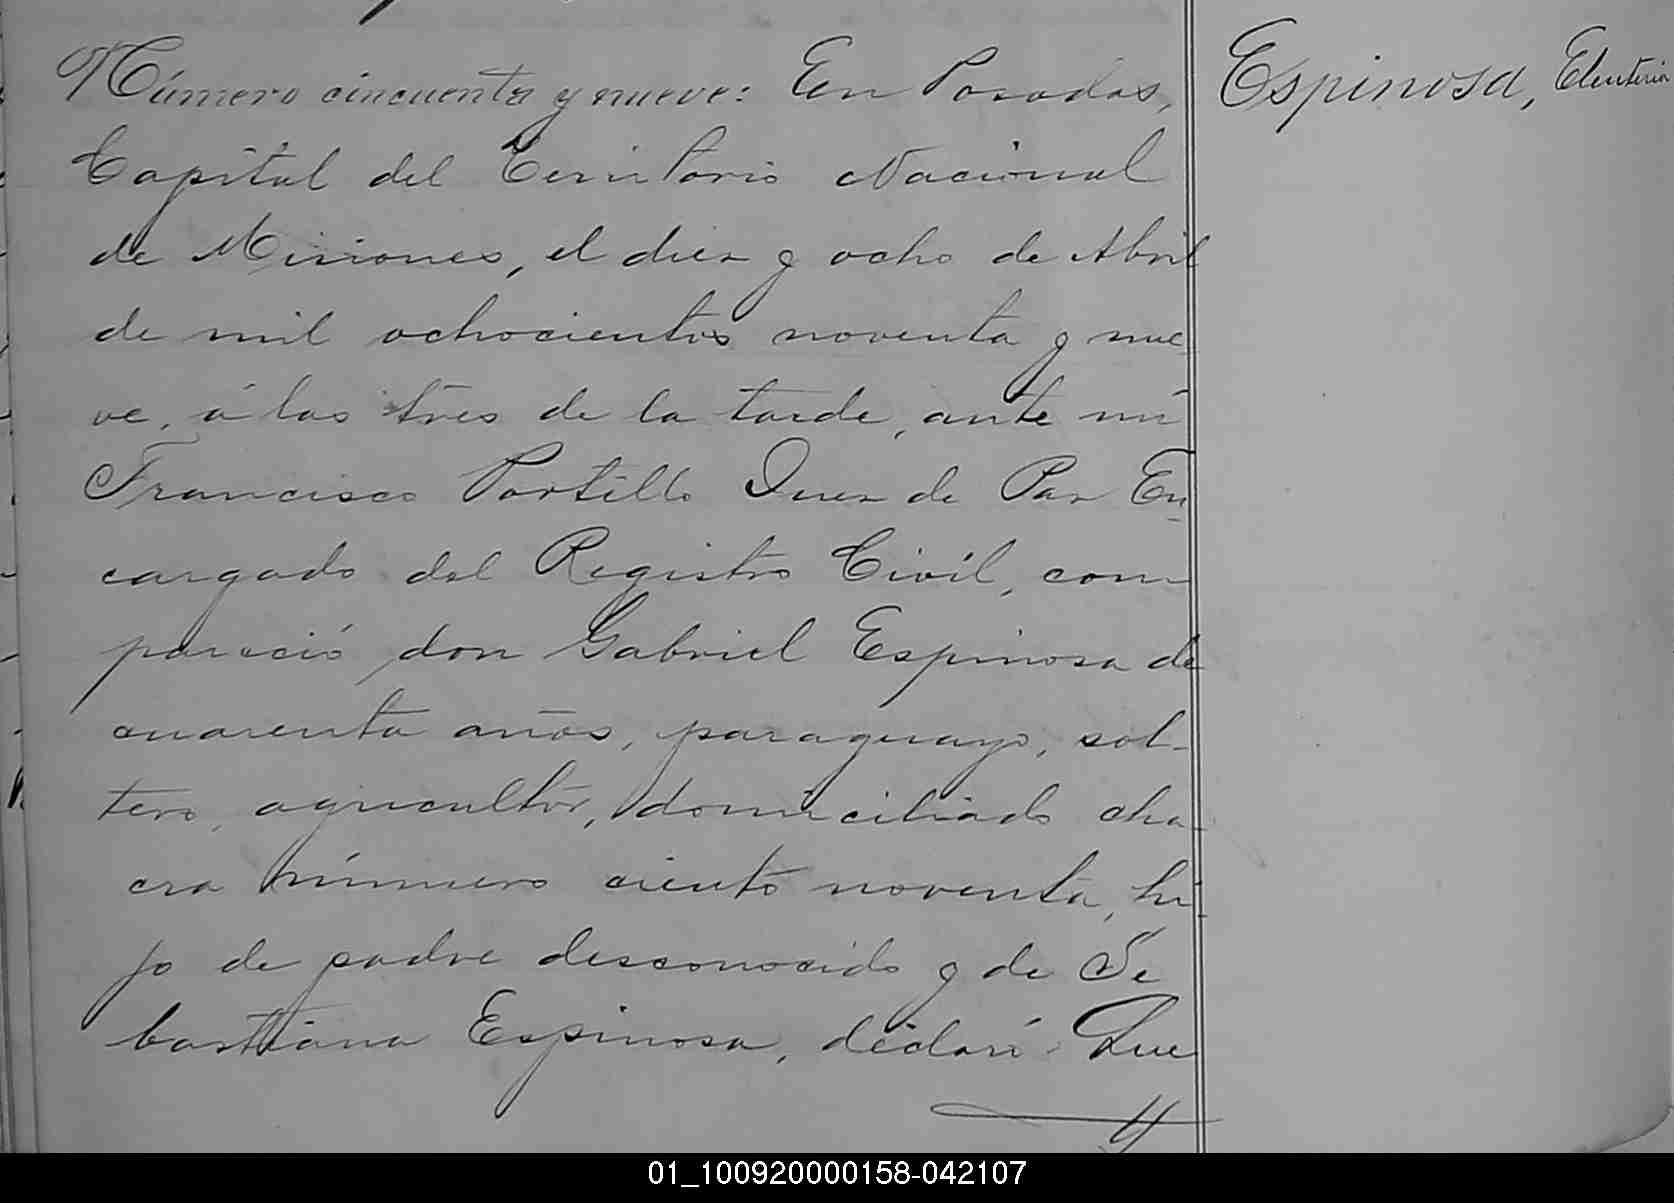 Número cincuenta y nueve: En Posadas,
Espinosa, Eleuteria
Capital del Territorio Nacional
de Misiones, el diez y ocho de Abril
de mil ochocientos noventa y nue
ve, á las tres de la tarde, ante mí
Francisco Portillo Juez de Paz En
cargado del Registro Civil, com
pareció don Gabriel Espinosa de
cuarenta años, paraguayo, sol-
tero, agricultor, domiciliado cha-
cra número ciento noventa, hi-
jo de padre desconocido y de Se
bastiana Espinosa, declaró: Que
01_100920000158-042107